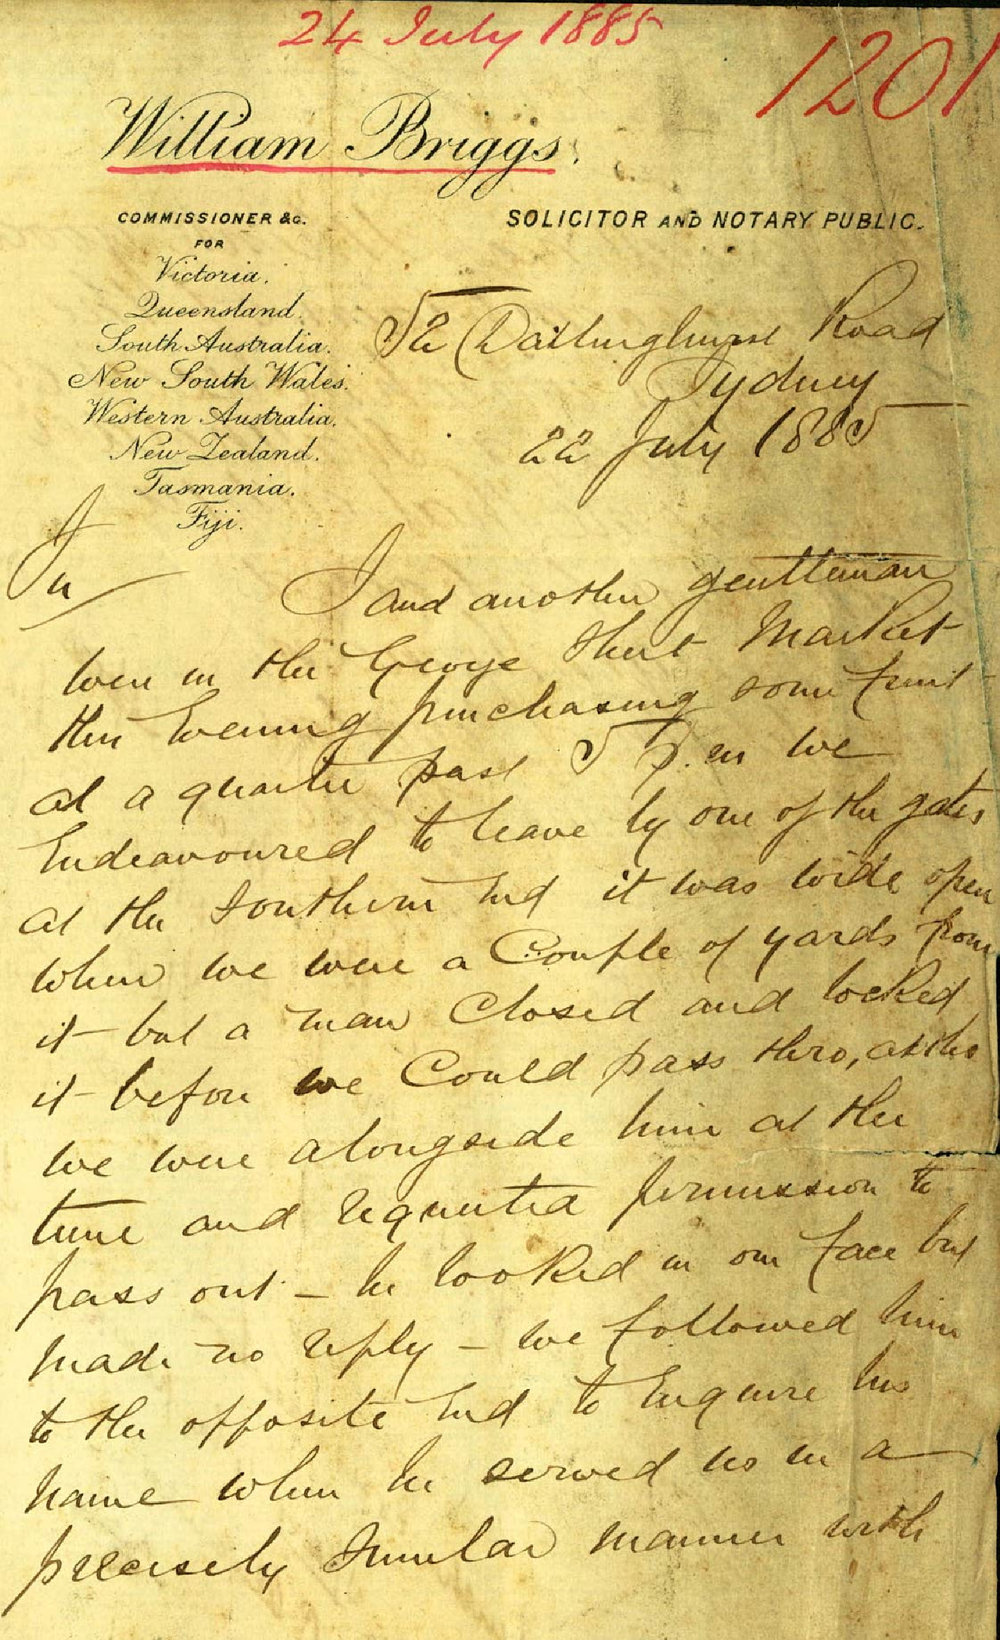 24 July 1885
1201
William Briggs.
COMMISSIONER &c.
FOR
Victoria.
Queensland.
South Australia.
New South Wales.
Western Australia.
New Zealand.
Tasmania.
Fiji.
SOLICITOR AND NOTARY PUBLIC.
52 Darlinghurst Road
Sydney
22 July 1885
Sir
I and another gentleman
were in the George Street Market
this Evening purchasing some fruit
at a quarter past 5 p.m we
Endeavoured to leave by one of the gates
at the Southern End it was wide open
when we were a Couple of yards from
it but a man Closed and locked
it before we Could pass thro, altho
we were alongside him at the
time and requested permission to
pass out - he looked in our face but
made no reply - we followed him
to the opposite End to Enquire his
name when he served us in a
precisely similar manner with